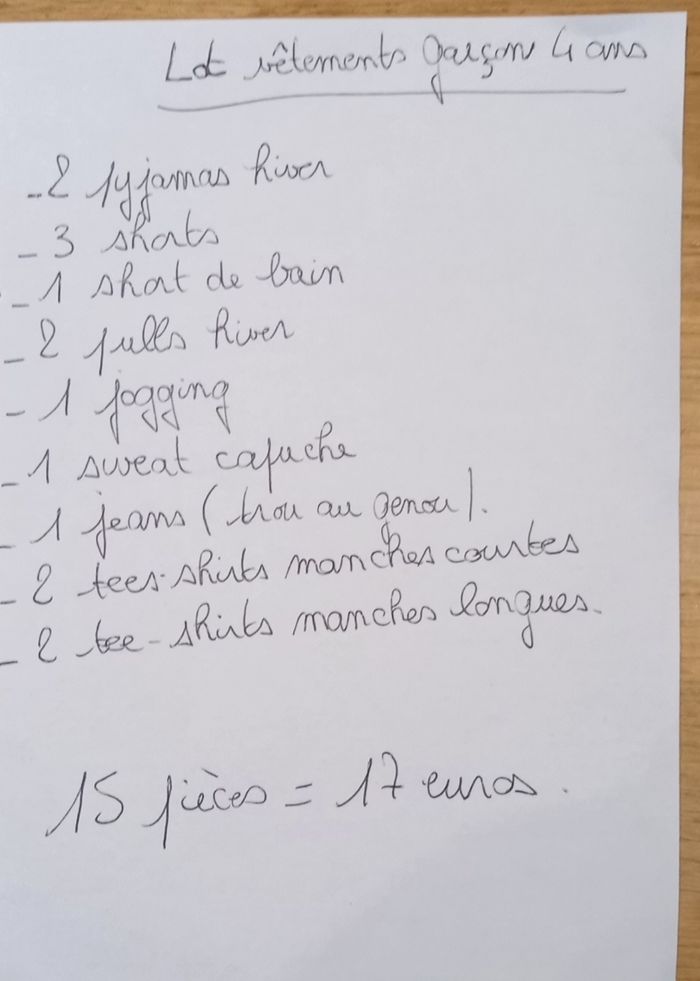 Lot vêtements garçon 4 ans
- 2 pyjamas hiver
- 3 shorts
- 1 short de bain
- 2 pulls hiver
- 1 jogging
- 1 sweat capuche
- 1 jeans (trou au genou).
- 2 tees-shirts manches courtes
- 2 tee-shirts manches longues.
15 pièces = 17 euros.